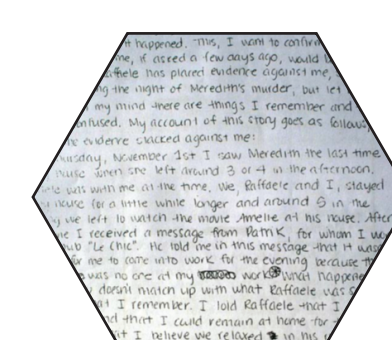 it happened. This, I want to confirm
me, if asked a few days ago, would b
Raffaele has placed evidence against me,
ng the night of Meredith's murder, but let
my mind there are things I remember and
onfused. My account of this story goes as follows,
he evidence stacked against me:
ursday, November 1st I saw Meredith the last time
house when she left around 3 or 4 in the afternoon.
was with me at the time. We, Raffaele and I, stayed
house for a little while longer and around 5 in the
we left to watch the movie Amelie at his house. After
ie I received a message from Patrik, for whom I wo
pub "Le Chic". He told me in this message that it was
for me to come into work for the evening because th
was no one at my work. what happene
doesn't match up with what Raffaele was s
at I remember. I told Raffaele that I
nd that I could remain at home for
t I believe we relaxed in his